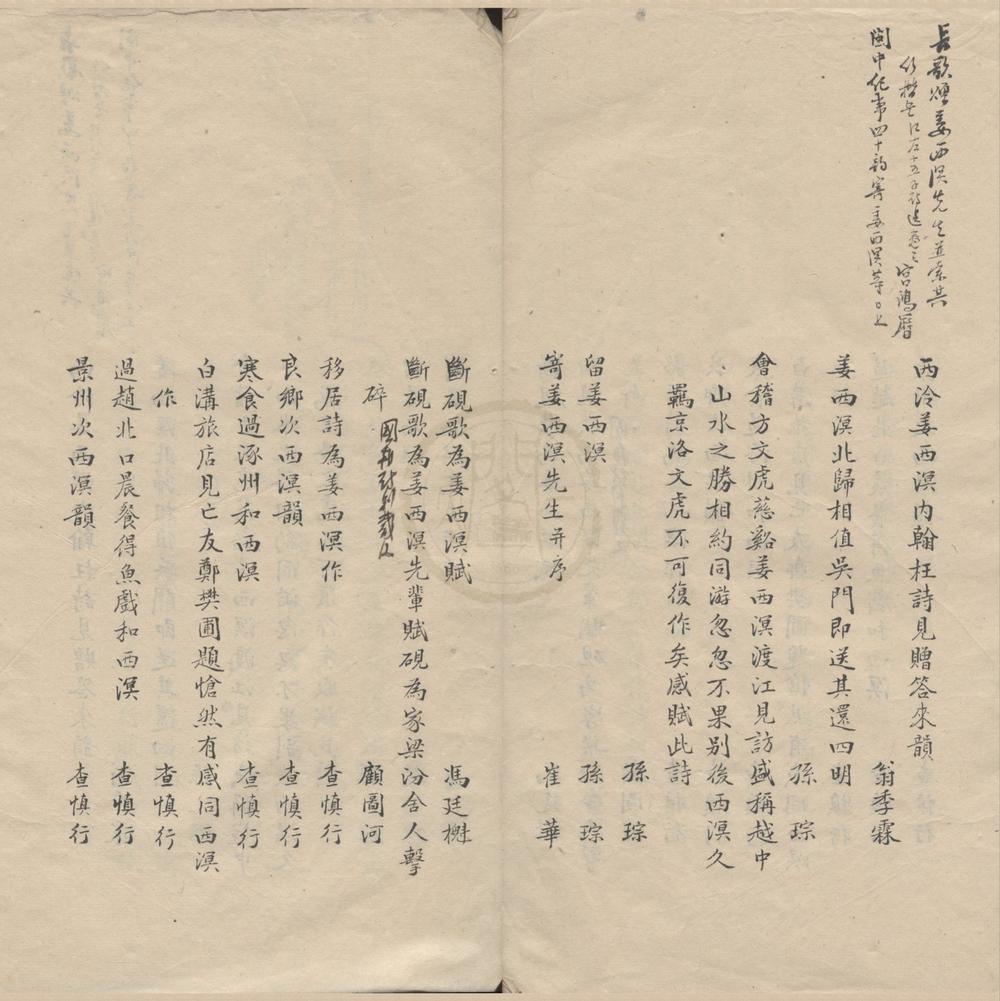 長歌贈姜西溟先生並索其
宮鴻曆
閩中紀事四十韵寄姜西溟等
西泠姜西溟內翰枉詩見贈答來韻
翁季霖
姜西溟北歸相值吳門即送其還四明
孫琮
會稽方文虎慈谿姜西溟渡江見訪盛稱越中
山水之勝相約同游忽忽不果別後西溟久
羈京洛文虎不可復作矣感賦此詩
孫琮
留姜西溟 孫琮
寄姜西溟先生并序 崔華
斷硯歌為姜西溟賦 馮廷櫆
斷硯歌為姜西溟先輩賦硯為家梁汾舍人擊
碎 顧圖河
移居詩為姜西溟作 查慎行
良鄉次西溟韻 查慎行
寒食過涿州和西溟 查慎行
白溝旅店見亡友鄭樊圃題愴然有感同西溟
作 查慎行
過趙北口晨餐得魚戲和西溟 查慎行
景州次西溟韻 查慎行